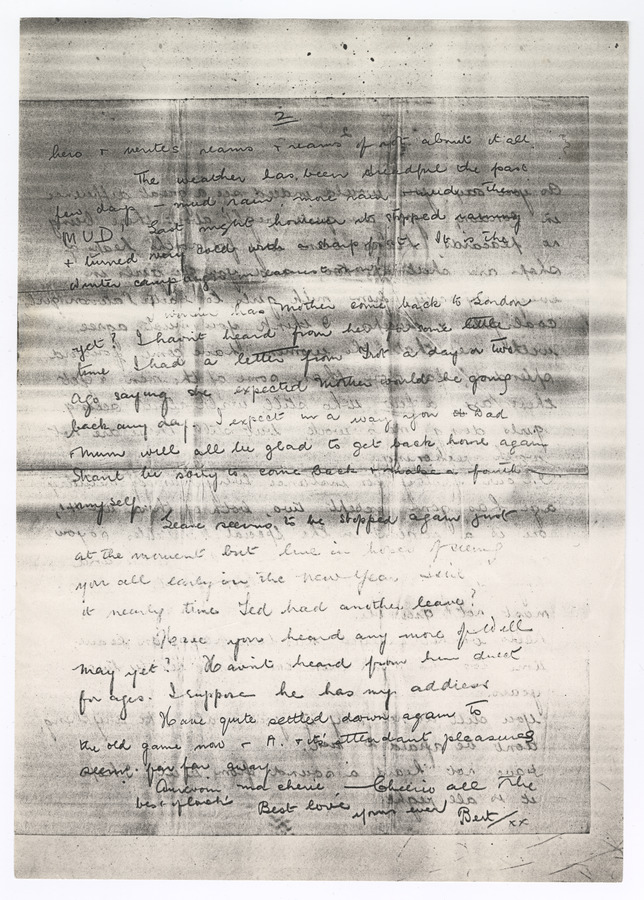 2
hero & writes reams & reams of rot about it all.
The weather has been dreadful the past
few days – mud rain, more rain & mud then
MUD. Last night however its stopped raining
& turned very cold with a sharp frost. It is the
winter campaign
has Mother come back to London
yet? I havnt heard from her for some little
time I had a letter from Dot a day or two
ago saying she expected Mother would be going
back any day. I expect in a way you & Dad
& Mum will all be glad to get back home again
Shant be sorry to come back & make a fourth
myself.
Leave seems to be stopped again just
at the moment but live in hopes of seeing
you all early in the New Year. Isn't
it nearly time Ted had another leave?
Have you heard any more of Will
May yet? Havnt heard from him direct
for ages. I suppose he has my address
Have quite settled down again to
the old game now & A. & its attendant pleasures
seems far far away.
Aurevoir ma cherie — Cheerio all the
best
Best love
yours ever Bert/xx